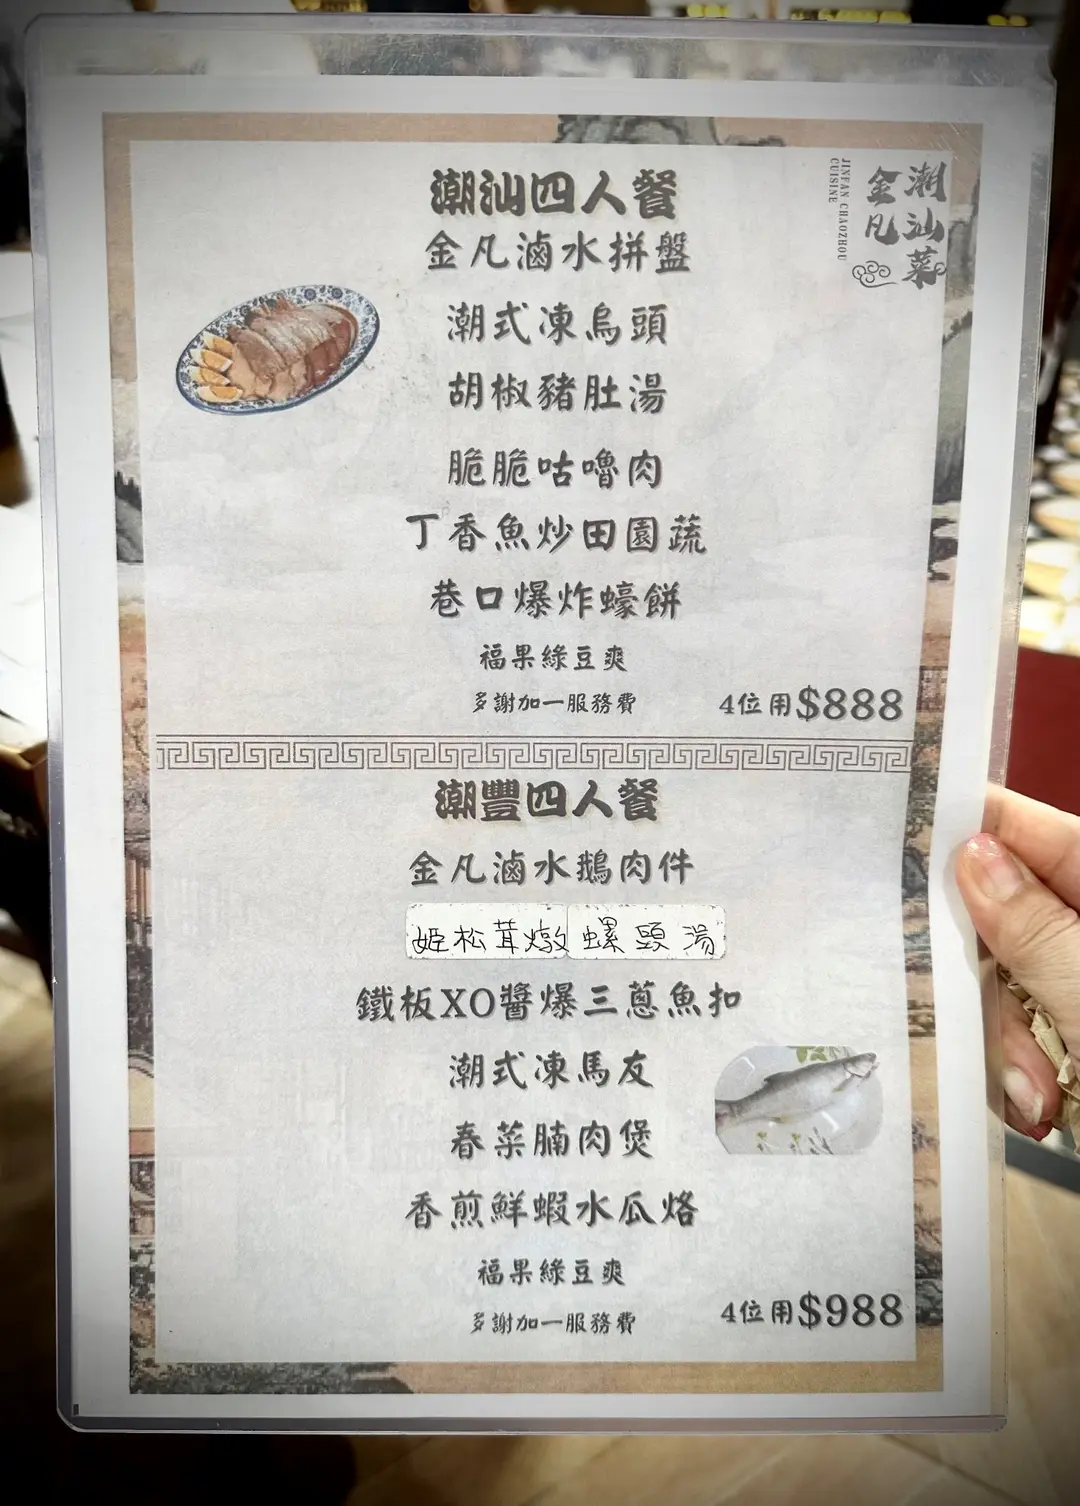 潮汕菜
金凡
JINFAN CHAOZHOU
CUISINE
潮汕四人餐
金凡滷水拼盤
潮式凍烏頭
胡椒豬肚湯
脆脆咕嚕肉
丁香魚炒田園蔬
巷口爆炸蠔餅
福果綠豆爽
多謝加一服務費
4位用$888
潮豐四人餐
金凡滷水鵝肉件
姬松茸燉螺頭湯
鐵板XO醬爆三蔥魚扣
潮式凍馬友
春菜腩肉煲
香煎鮮蝦水瓜烙
福果綠豆爽
多謝加一服務費
4位用$988